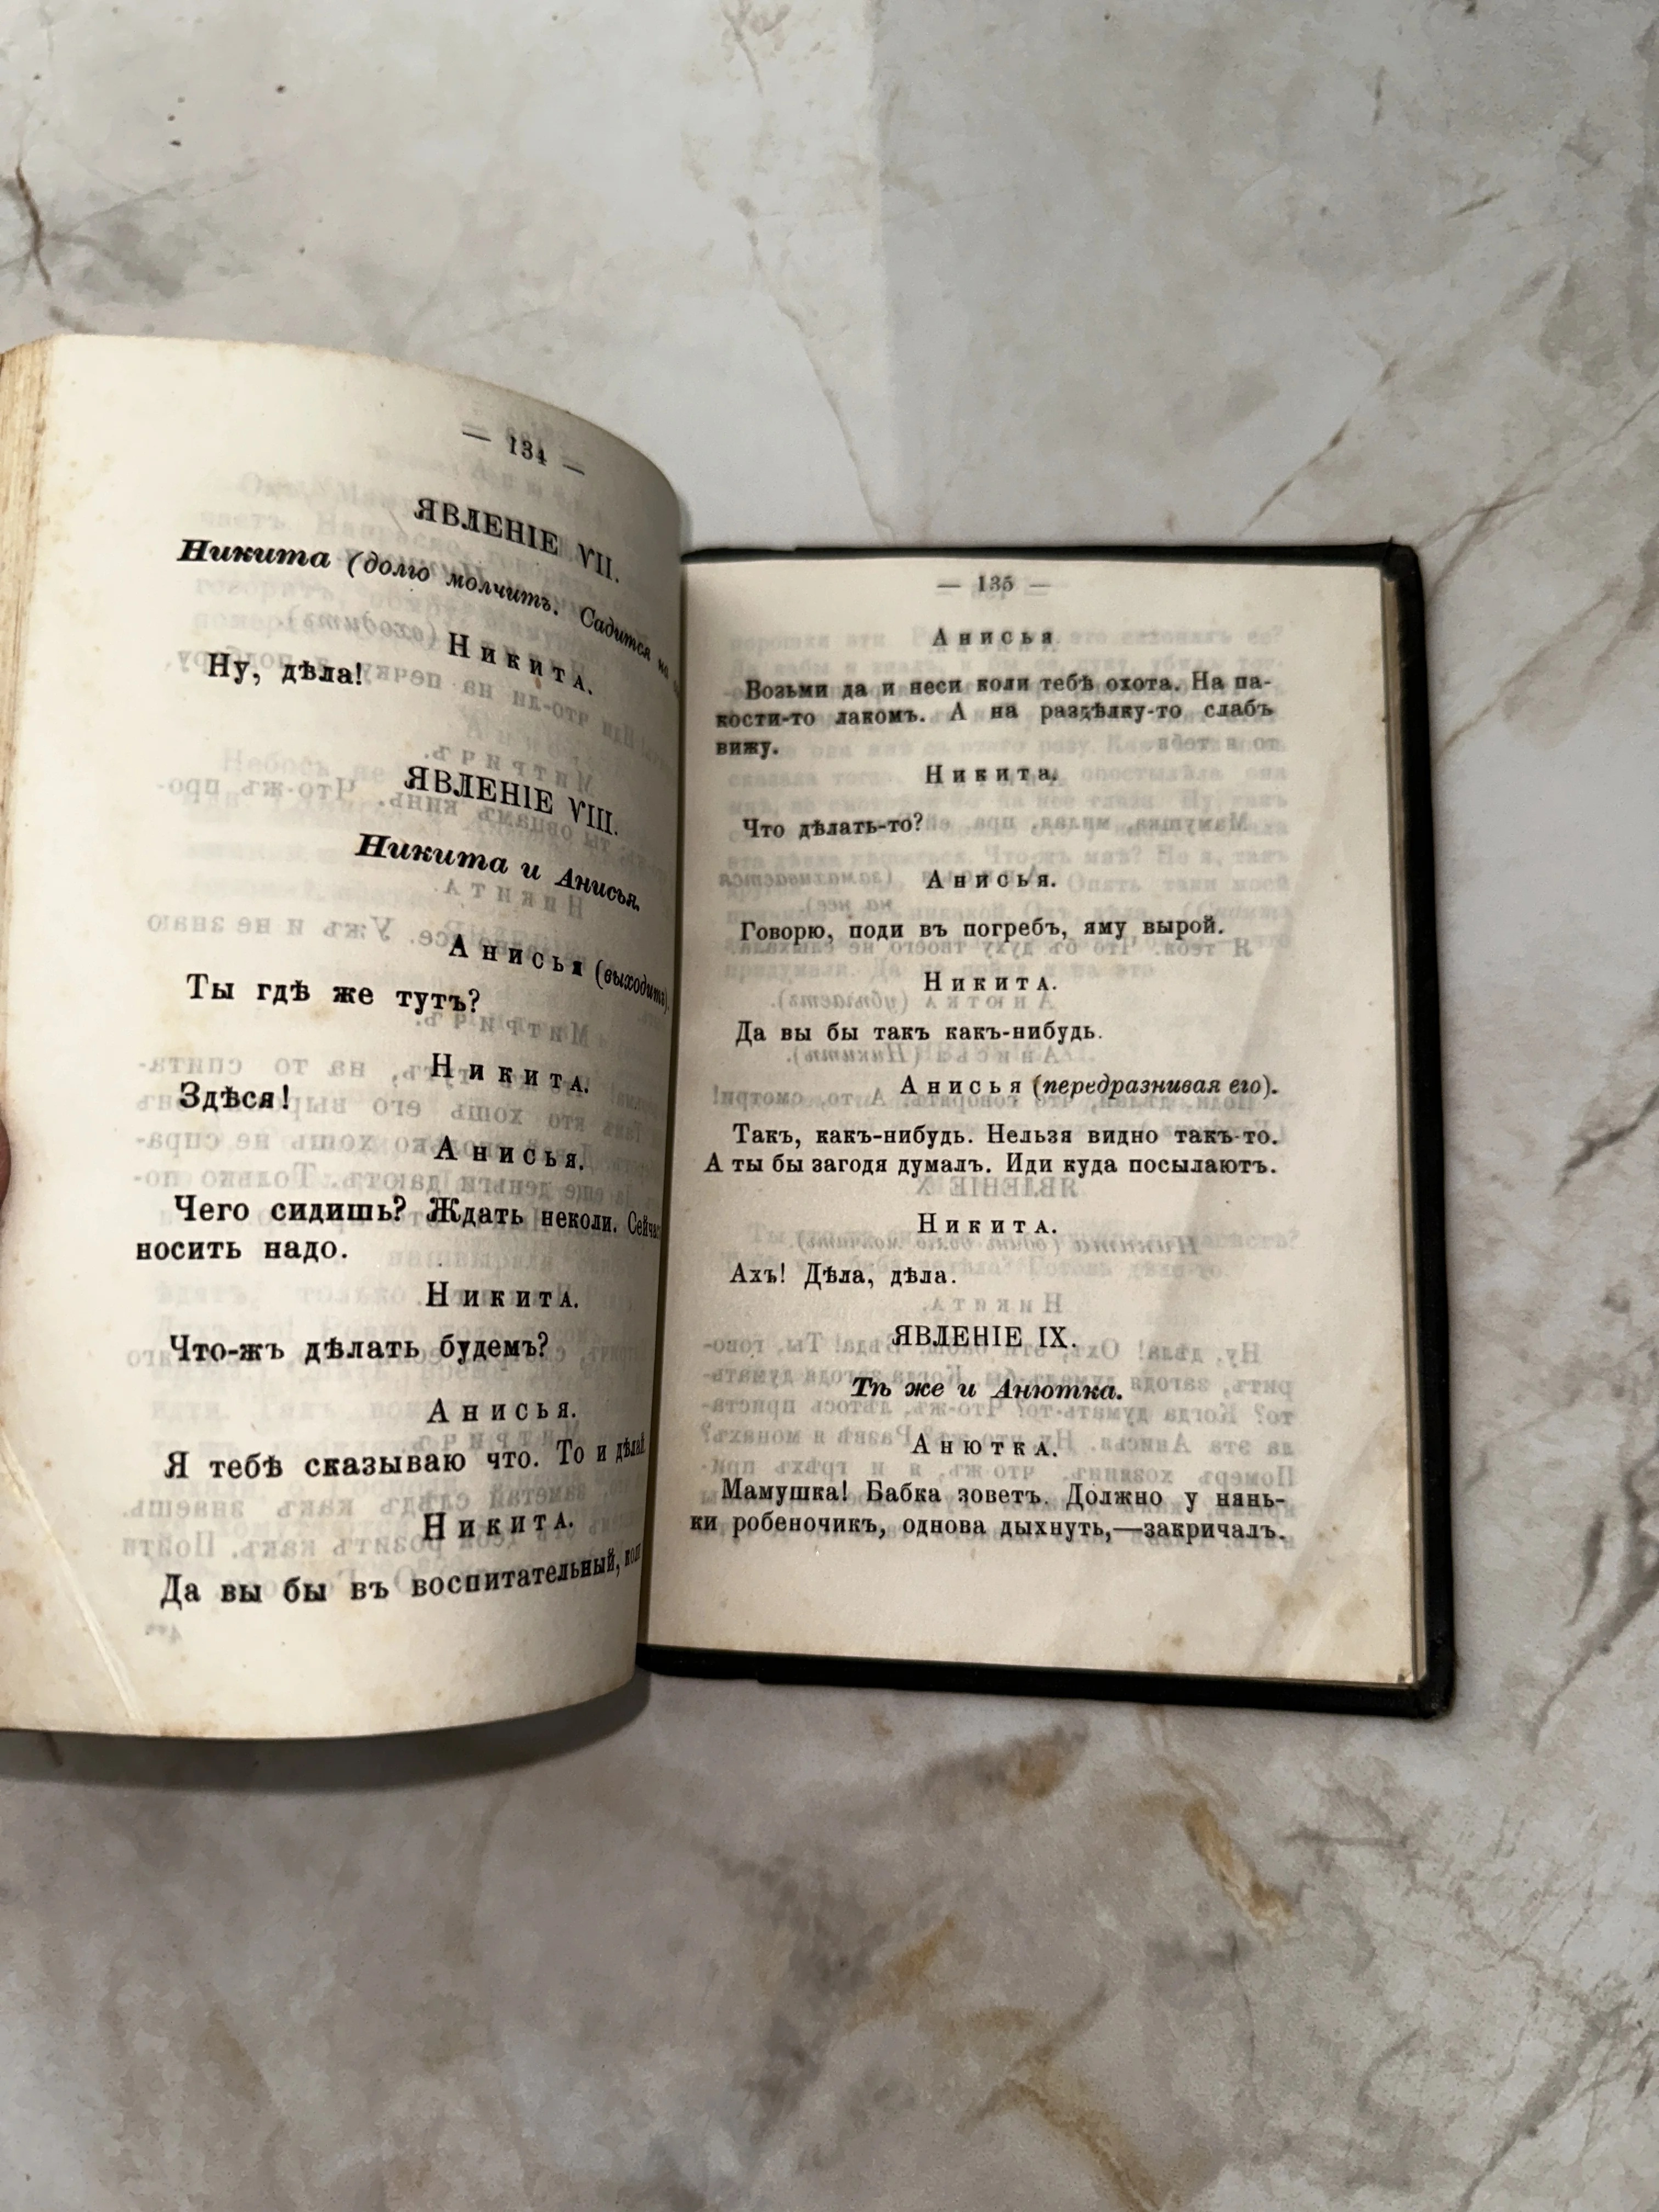 — 134 —
ЯВЛЕНІЕ VII.
Никита (долго молчитъ. Садится
Никита.
Ну, дѣла!
ЯВЛЕНІЕ VIII.
Никита и Анисья.
Анисья (выходитъ).
Ты гдѣ же тутъ?
Никита.
Здѣся!
Анисья.
Чего сидишь? Ждать неколи. Сейчасъ
носить надо.
Никита.
Что-жъ дѣлать будемъ?
Анисья.
Я тебѣ сказываю что. То и дѣлай
Никита.
Да вы бы въ воспитательный,
— 135 —
Анисья
Возьми да и неси коли тебѣ охота. На па-
кости-то лакомъ. А на раздѣлку-то слабъ
вижу.
Никита.
Что дѣлать-то?
Анисья.
Говорю, поди въ погребъ, яму вырой.
Никита.
Да вы бы такъ какъ-нибудь.
Анисья (передразнивая его).
Такъ, какъ-нибудь. Нельзя видно такъ-то.
А ты бы загодя думалъ. Иди куда посылаютъ.
Никита.
Ахъ! Дѣла, дѣла.
ЯВЛЕНІЕ IX.
Тѣ же и Анютка.
Анютка.
Мамушка! Бабка зоветъ. Должно у нянь-
ки робеночикъ, однова дыхнуть,—закричалъ.